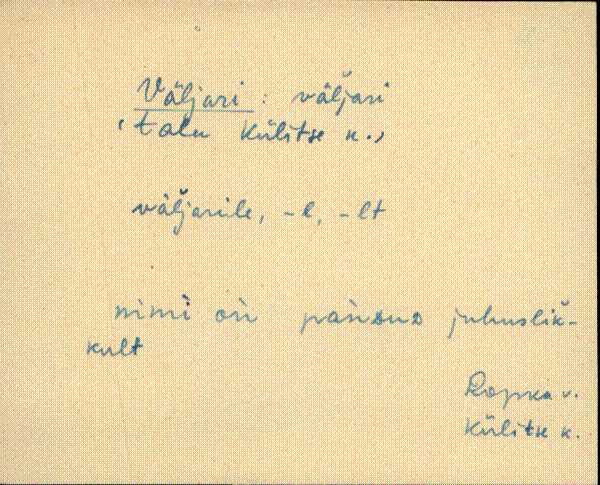 Väljari : väljari
(talu Külitse k.)
väljarile, -l, -lt
nimi on pandud juhuslik-
kult
Ropka v.
Külitse k.